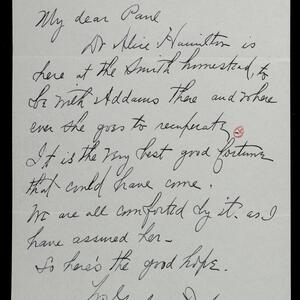 My dear Paul
Dr Alice Hamilton is
here at the Smith homestead, to
be with Addams there and where
ever she goes to recuperate
It is the very best good fortune
that could have come.
We are all comforted by it. as I
have assured her -
So here's the good hope.